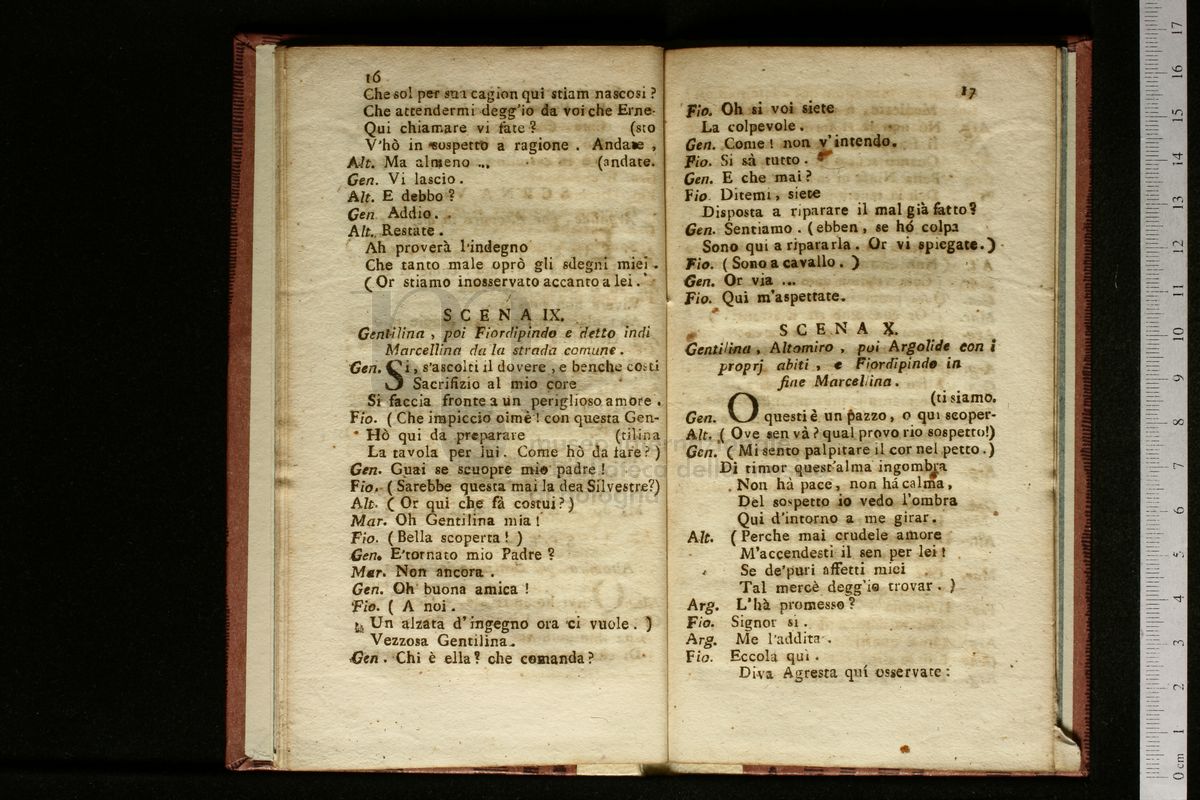 16
Che sol per sua cagion quì stiam nascosi ?
Che attendermi degg'io da voi che Erne-
Qui chiamare vi fate ? (sto
V'hò in sospetto a ragione . Andate ,
Alt. Ma almeno ... (andate.
Gen. Vi lascio .
Alt. E debbo ?
Gen Addio .
Alt. Restate .
Ah proverà l'indegno
Che tanto male oprò gli sdegni miei .
( Or stiamo inosservato accanto a lei .
SCENA IX.
Gentilina , poi Fiordipindo e detto indi
Marcellina da la strada comune .
Gen. Si, s'ascolti il dovere , e benche costi
Sacrifizio al mio core
Si faccia fronte a un periglioso amore .
Fio. ( Che impiccio oimè ! con questa Gen-
Hò qui da preparare (tilina
La tavola per lui. Come hò da fare ? )
Gen. Guai se scuopre mio padre !
Fio. ( Sarebbe questa mai la dea Silvestre?)
Alt. ( Or qui che fâ costui ? )
Mar. Oh Gentilina mia !
Fio. ( Bella scoperta ! )
Gen. E'tornato mio Padre ?
Mar. Non ancora .
Gen. Oh buona amica !
Fio. ( A noi .
Un alzata d'ingegno ora ci vuole . )
Vezzosa Gentilina.
Gen . Chi è ella ? che comanda ?
17
Fio. Oh si voi siete
La colpevole .
Gen. Come ! non v'intendo.
Fio. Si sà tutto .
Gen. E che mai ?
Fio Ditemi, siete
Disposta a riparare il mal già fatto ?
Gen. Sentiamo . ( ebben , se hó colpa
Sono qui a ripararla . Or vi spiegate. )
Fio. ( Sono a cavallo . )
Gen. Or via ...
Fio. Qui m'aspettate.
SCENA X.
Gentilina , Altomiro , poi Argolide con i
proprj abiti , e Fiordipindo in
fine Marcellina .
(ti siamo.
Gen. O questi è un pazzo, o qui scoper-
Alt. ( Ove sen và ? qual provo rio sospetto!)
Gen. ( Mi sento palpitare il cor nel petto . )
Di timor quest'alma ingombra
Non hà pace, non há calma,
Del sospetto io vedo l'ombra
Qui d'intorno a me girar.
Alt. ( Perche mai crudele amore
M'accendesti il sen per lei !
Se de'puri affetti miei
Tal mercè degg'io trovar . )
Arg. L'hà promesso ?
Fio. Signor si .
Arg. Me l'addita .
Fio. Eccola qui .
Diva Agresta quí osservate :